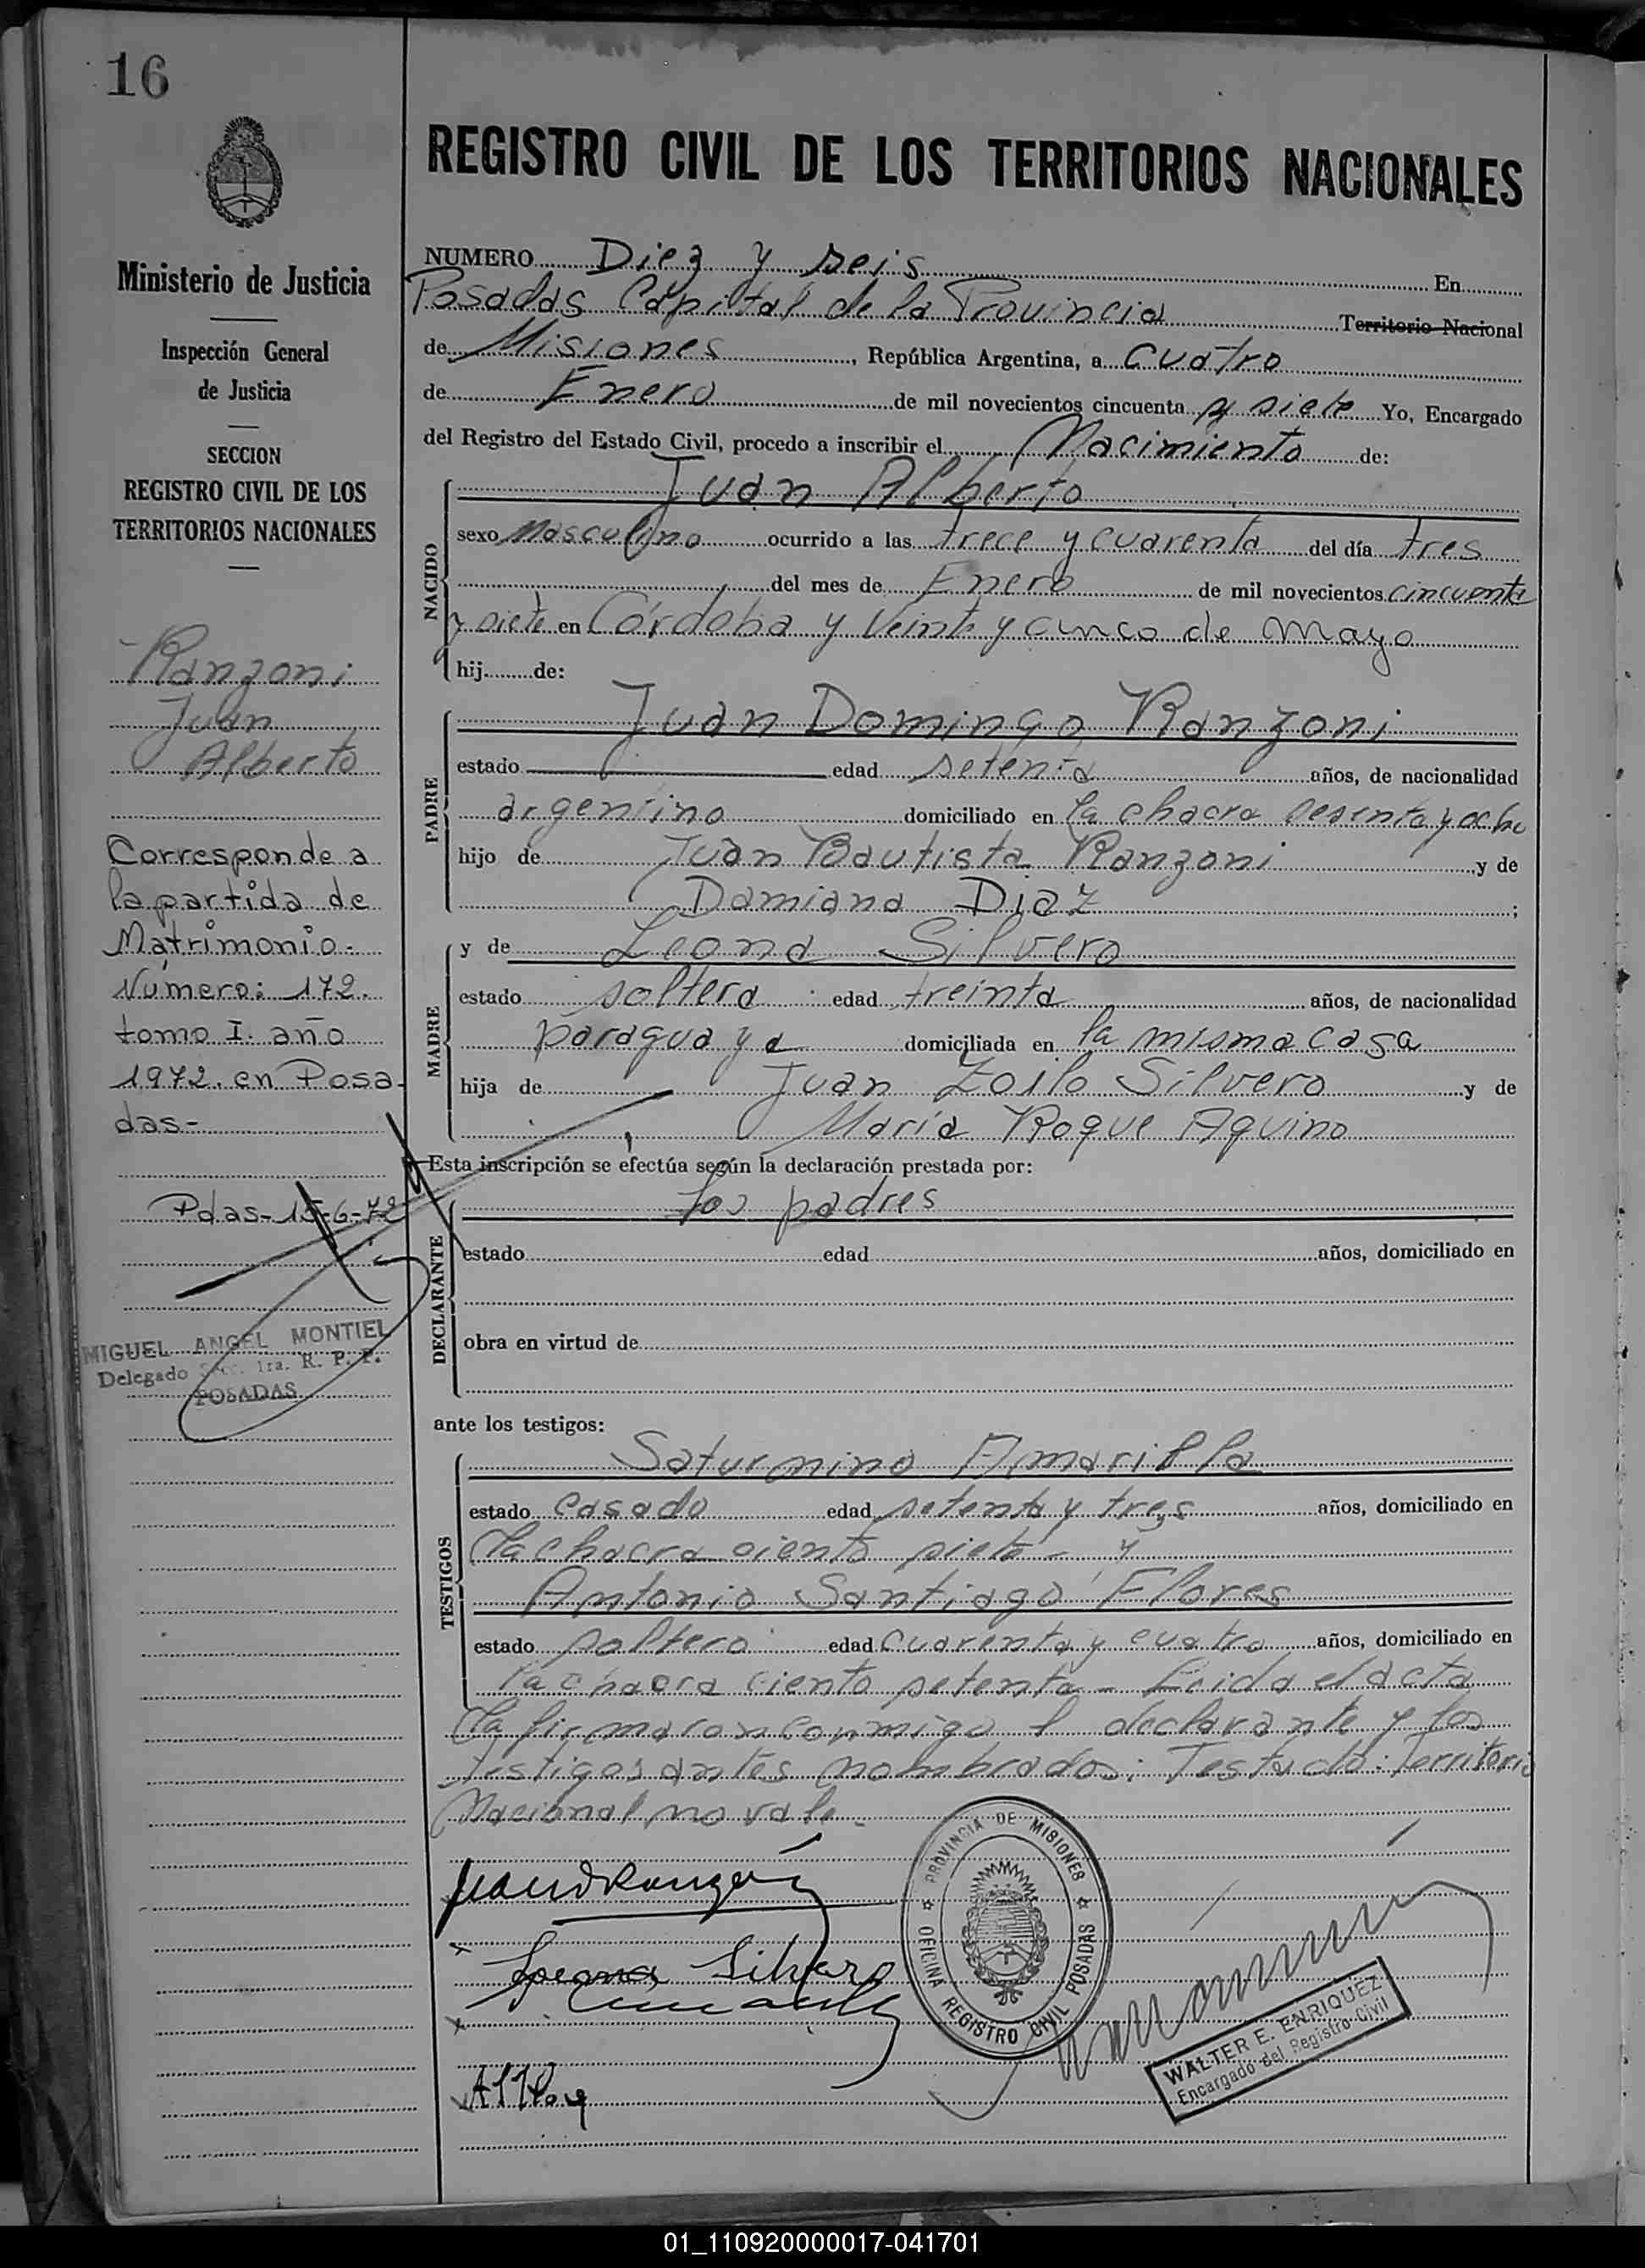 16
REGISTRO CIVIL DE LOS TERRITORIOS NACIONALES
Ministerio de Justicia
Inspección General
de Justicia
SECCION
REGISTRO CIVIL DE LOS
TERRITORIOS NACIONALES
Ranzoni
Juan
Alberto
Corresponde a
la partida de
Matrimonio.
Número: 172.
tomo I. año
1972. en Posa-
das-
Pdas- 15-6-72
MIGUEL ANGEL MONTIEL
Delegado Secc. 1ra. R. P. P.
POSADAS
NUMERO Diez y seis En
Posadas Capital de la Provincia Territorio Nacional
de Misiones, República Argentina, a cuatro
de Enero de mil novecientos cincuenta y siete Yo, Encargado
del Registro del Estado Civil, procedo a inscribir el Nacimiento de:
NACIDO
Juan Alberto
sexo Masculino ocurrido a las trece y cuarenta del día tres
del mes de Enero de mil novecientos cincuenta
y siete en Córdoba y Veinte y cinco de Mayo
hij de:
PADRE
Juan Domingo Ranzoni
estado edad setenta años, de nacionalidad
argentino domiciliado en la chacra sesenta y ocho
hijo de Juan Bautista Ranzoni y de
Damiana Diaz ;
MADRE
y de Leona Silvero
estado soltera edad treinta años, de nacionalidad
paraguaya domiciliada en la misma casa
hija de Juan Zoilo Silvero y de
María Roque Aquino
Esta inscripción se efectúa según la declaración prestada por:
DECLARANTE
Los padres
estado edad años, domiciliado en
obra en virtud de
ante los testigos:
TESTIGOS
Saturnino Amarilla
estado casado edad setenta y tres años, domiciliado en
la chacra ciento siete - y
Antonio Santiago Flores
estado soltero edad cuarenta y cuatro años, domiciliado en
la chacra ciento setenta - Leida el acta
la firmaron conmigo l declarante y los
testigos antes nombrados: Testado: Territorio
Nacional, no vale
Juan D Ranzoni
Leona Silvero
PROVINCIA DE MISIONES
OFICINA REGISTRO CIVIL POSADAS
WALTER E. ENRIQUEZ
Encargado del Registro Civil
01_110920000017-041701